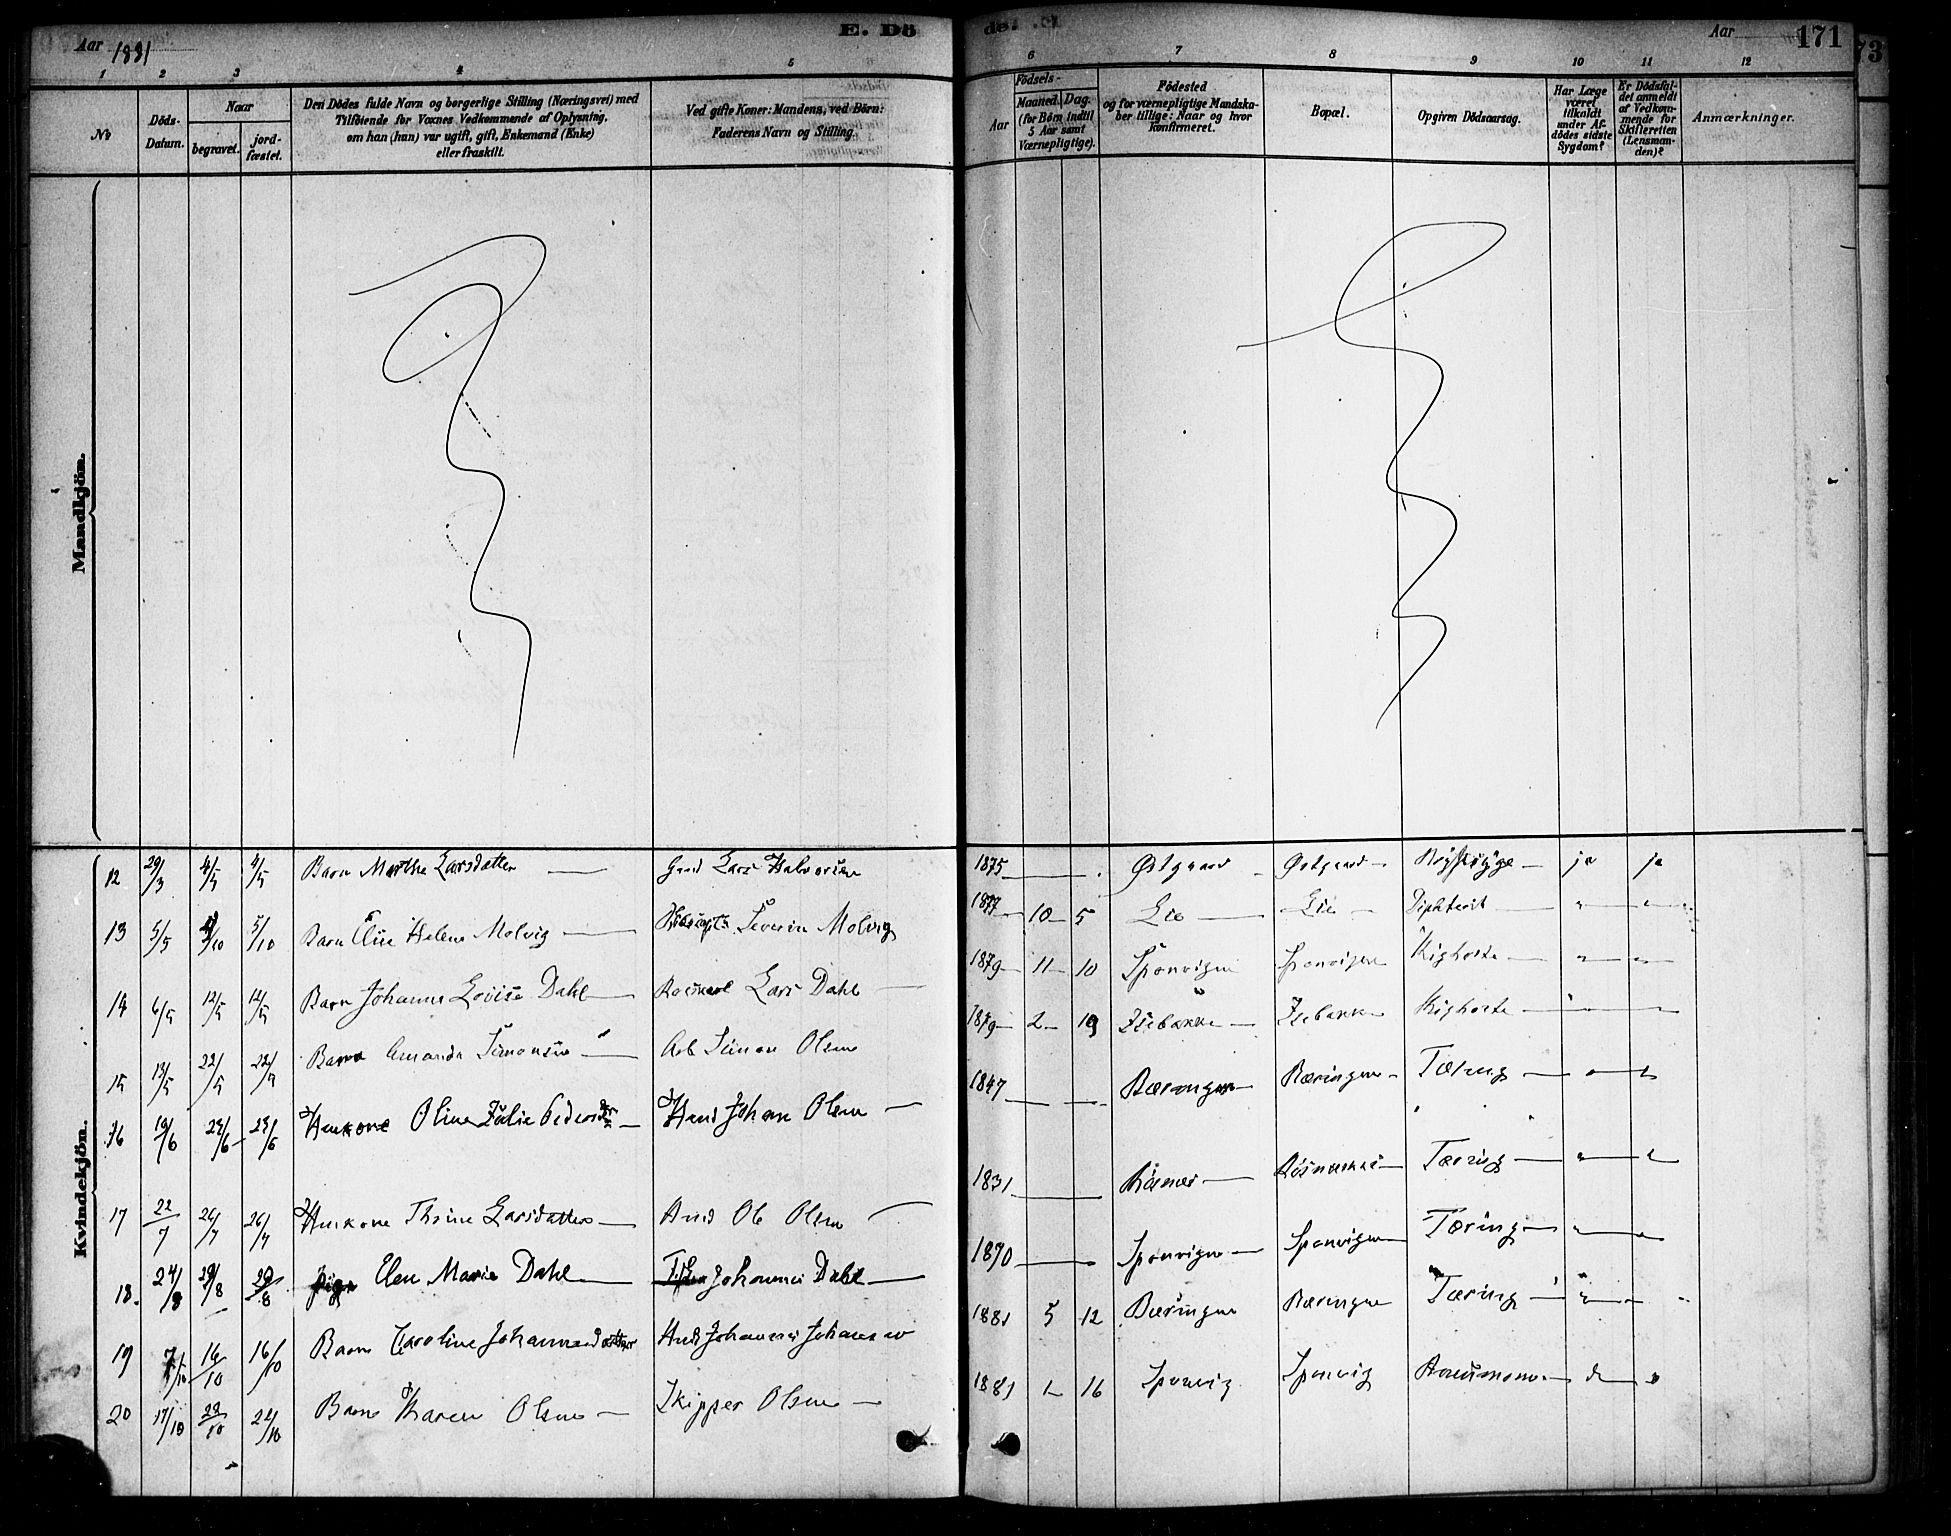 Aar 1881
E. Dö
de. 
Aar
171
73
1 2 3 4 5
6 7 8 9 10 11 12
No
Döds-Datum.
Naar
begravet.
jord-fæstet.
Den Dödes fulde Navn og borgerlige Stilling (Næringsvei) med
Tilföiende for Voxnes Vedkommende af Oplysning,
om han (hun) var ugift, gift, Enkemand (Enke)
eller fraskilt.
Ved gifte Koner: Mandens, ved Börn:
Faderens Navn og Stilling.
Födsels-
Aar
Maaned. Dag.
(for Börn indtil
5 Aar samt
Værnepligtige).
Födested
og for værnepligtige Mandska-
ber tillige: Naar og hvor
konfirmeret.
Bopæl.
Opgiven Dödsaarsag.
Har Læge
været
tilkaldt
under Af-
dödes sidste
Sygdom?
Er Dödsfal-
det anmeldt
af Vedkom-
mende for
Skifteretten
(Lensman-
den)?
Anmærkninger.
Mandkjön.
Kvindekjön.
12 29/3 4/5 4/5 Barn Marthe Larsdatter — Lars Halvorsen 1875 — Østgaard Østgaard — ja ja
13 5/5 5/10 Barn Elise Helene Molvig — Severin Molvig 1877 10 5 Lie — Lie — Diphterit — " — " —
14 6/5 12/5 12/5 Barn Johanne Lovise Dahl — Lars Dahl — 1879 — 11 — 10 Sponvigen Sponvigen Kighoste — " — " —
15 13/5 22/5 22/5 Barn Amanda Simonsen — Arb Simon Olsen 1879 — 2 — 19 — Kighoste —
16 19/6 24/6 24/6 Huskone Oline Julie Pedersdtr — Husd Johan Olsen — 1847 — Bæringen — Bæringen — Tæring —
17 22/7 26/7 26/7 Huskone Thrine Larsdatter — Husd Ole Olsen 1831 — Tæring —
18. 24/8 29/8 29/8 pige Elen Marie Dahl — Johannes Dahl — 1870 — Sponvigen — Sponvigen — Tæring —
19 7/10 16/10 16/10 Barn Caroline Johannesdatter Husd Johannes Johansen 1881 5 12 Bæringen Bæringen Tæring —
20 17/10 22/10 22/10 Barn Karen Olsen — Skipper Olsen — 1881 1 — 16 Sponvig Sponvig